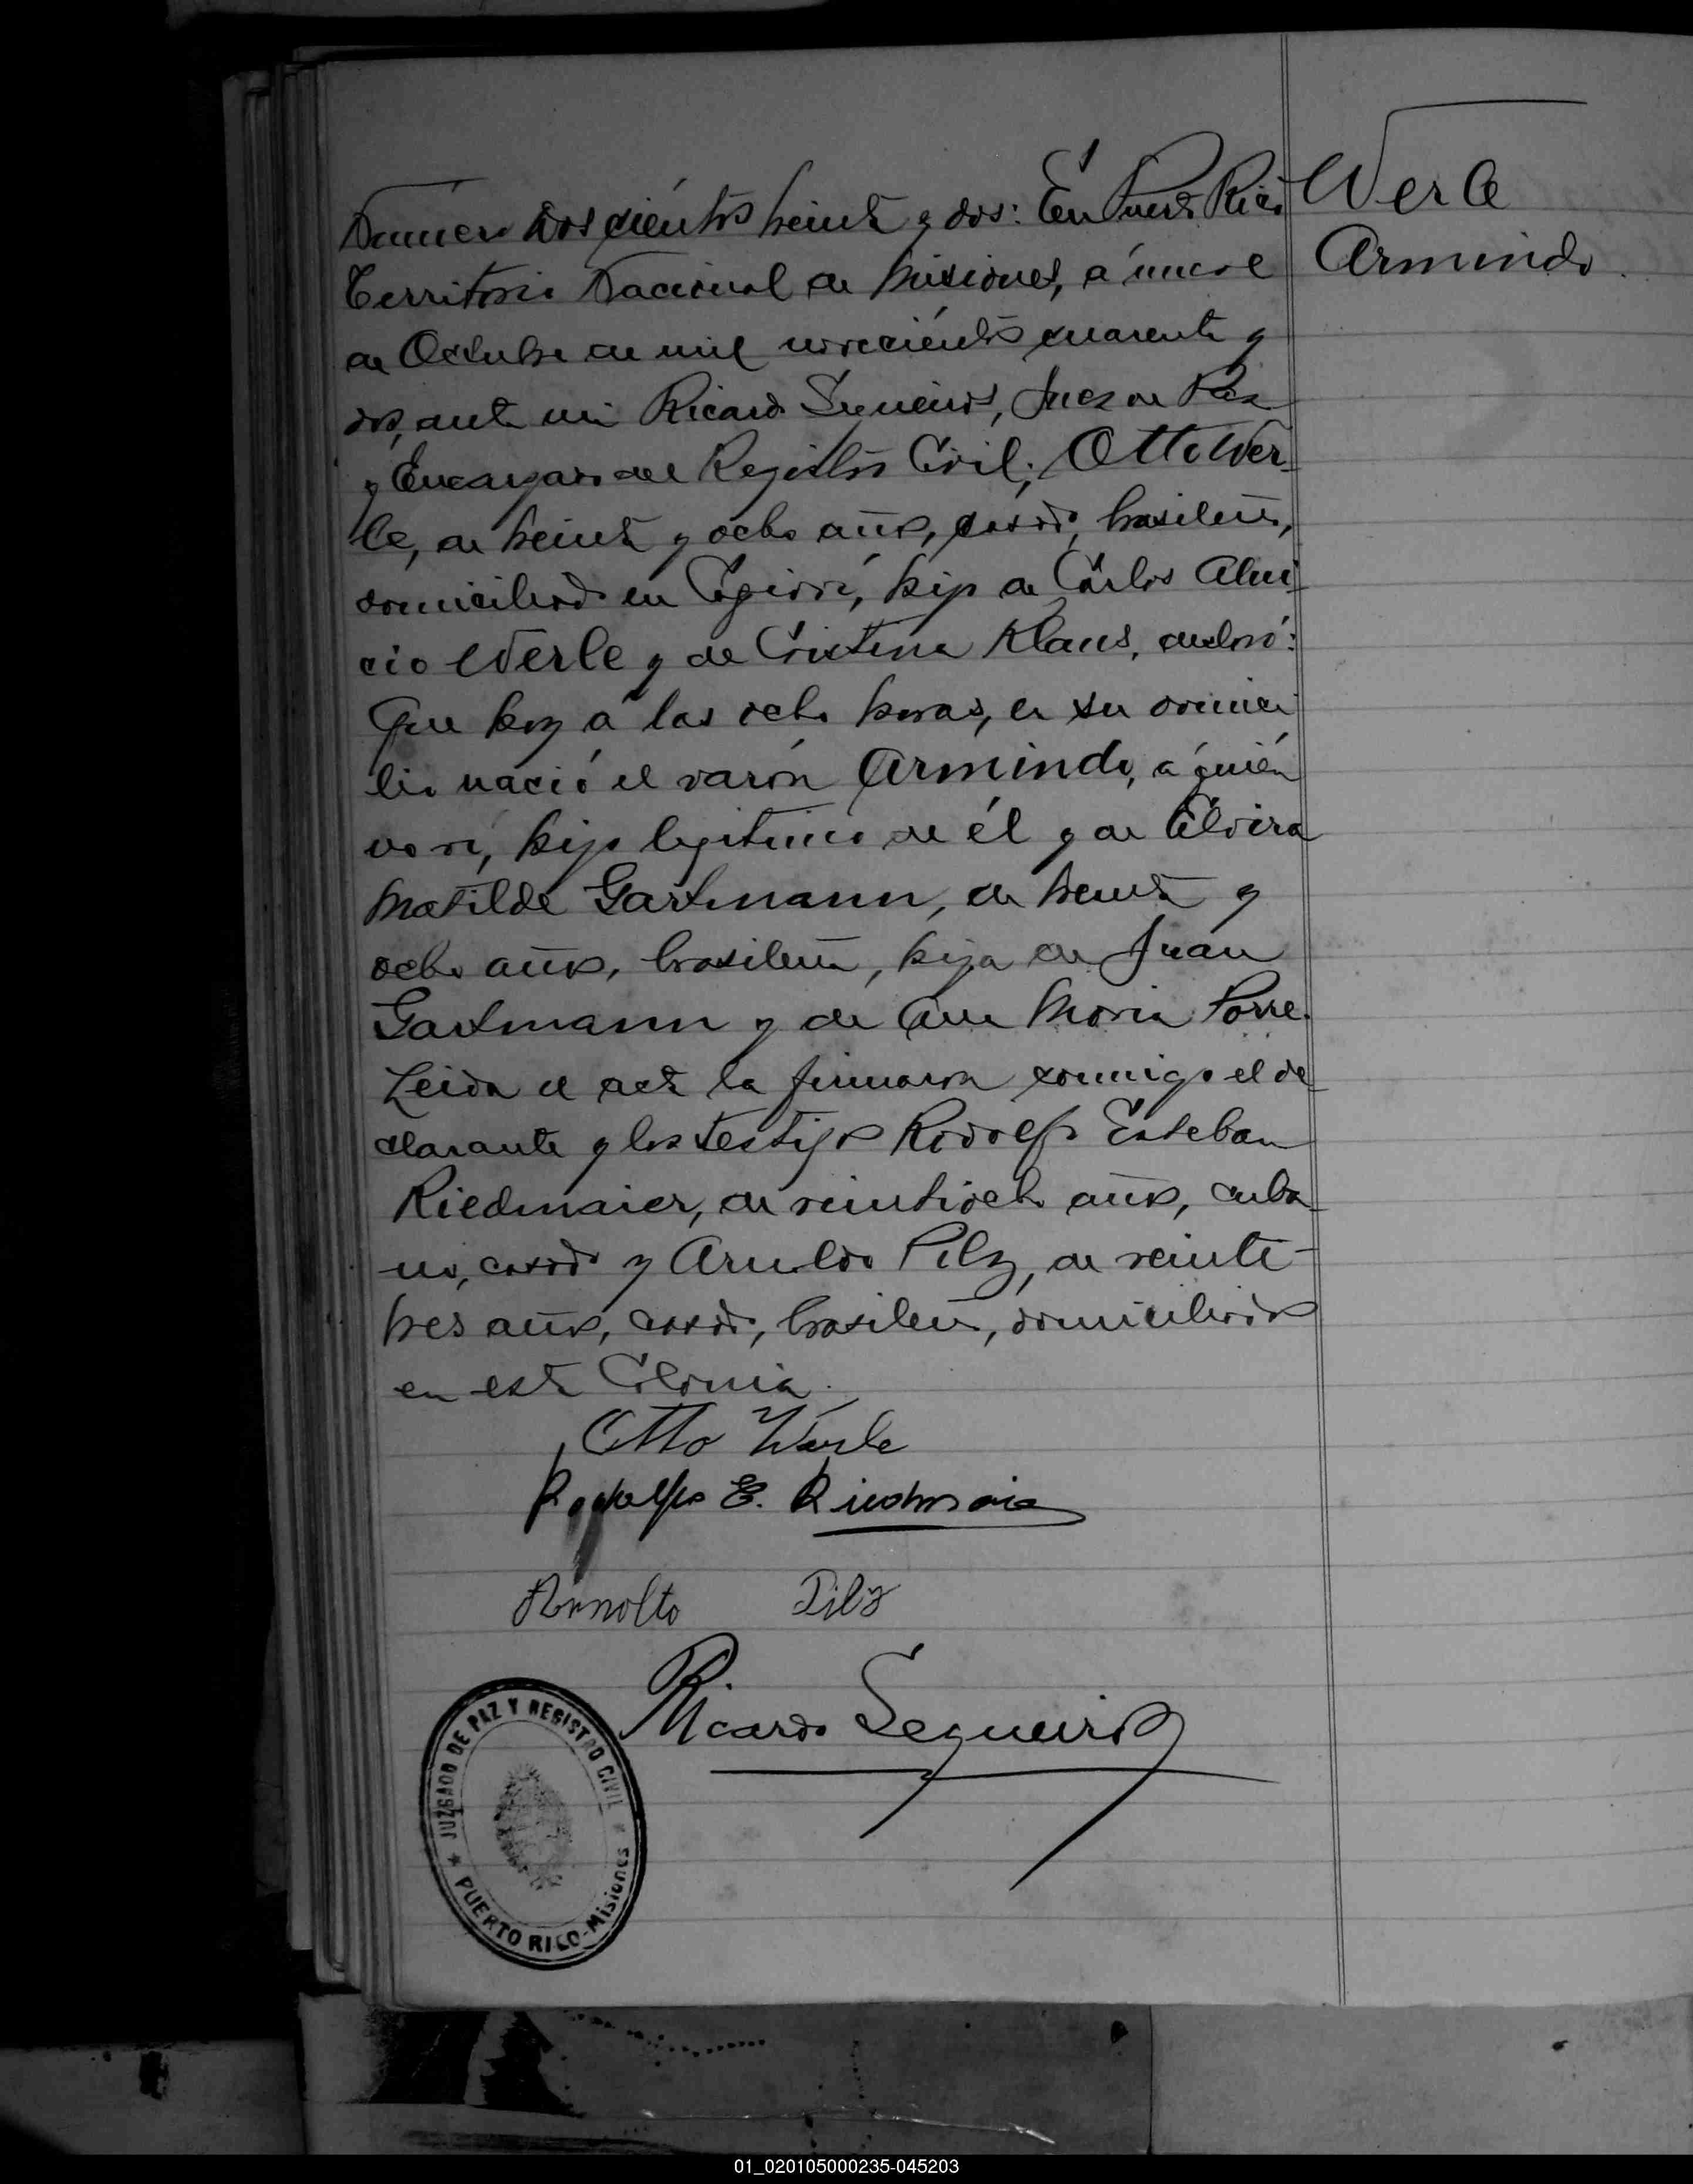 Werle
Armindo
Número Doscientos treinta y dos: En Puerto Rico
Territorio Nacional de Misiones, a nueve
de Octubre de mil novecientos cuarenta y
dos, ante mi Ricardo Sequeiros, Juez de Paz
y Encargado del Registro Civil; Otto Wer-
le, de treinta y ocho años, casado, brasileño,
domiciliado en hijo de Cárlos
cio Werle y de Cristina Klaus, declaró:
Que hoy a las ocho horas, en su domici-
lio nació el varón Armindo, a quién
vi, hijo legitimo de él y de Elvira
Matilde Gartmann, de treinta y
ocho años, brasileña, hija de Juan
Gartmann y de Ana Maria
Leida el acta la firmaron conmigo el de-
clarante y los testigos Rodolfo Esteban
Riedmaier, de veintiocho años, cuba-
no, casado y Arnoldo Pilz, de veinti-
tres años, casado, brasileño, domiciliados
en esta Colonia.
Otto Werle
Rodolfo E. Riedmaier
Arnolto Pilz
Ricardo Sequeiros
JUZGADO DE PAZ Y REGISTRO CIVIL
PUERTO RICO-Misiones
01_020105000235-045203